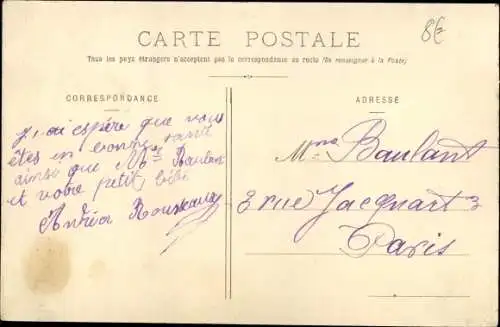 8€
CARTE POSTALE
Tous les pays étrangers n'acceptent pas la correspondance au recto (Se renseigner à la Poste)
CORRESPONDANCE
ADRESSE
j'ai espère que vous
êtes en bonne santé
ainsi que Mr Baulant
et votre petit bébé
Andréa Rousseau
Mme Baulant
3 rue Jacquart 3
Paris